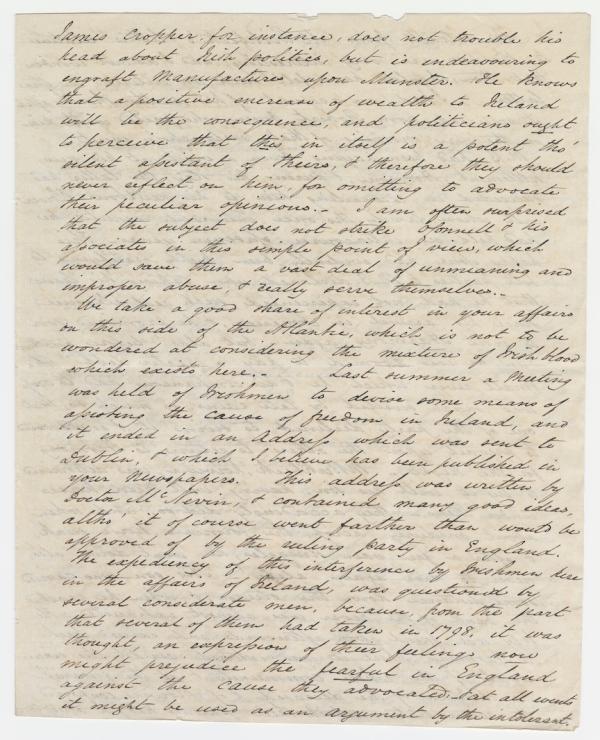 James Cropper for instance, does not trouble his
head about Irish politics, but is endeavouring to
engraft Manufactures upon Munster. He knows
that a positive encrease of wealth to Ireland
will be the consequence, and politicians ought
to perceive that this in itself is a potent tho'
silent assistant of theirs, & therefore they should
never reflect on him, for omitting to advocate
their peculiar opinions.- I am often surprised
that the subject does not strike O'Connell & his
associates in this simple point of view, which
would save them a vast deal of unmeaning and
improper abuse, & really serve themselves.-
We take a good share of interest in your affairs
on this side of the Atlantic, which is not to be
wondered at considering the mixture of Irish blood
which exists here.- Last summer a Meeting
was held of Irishmen to devise some means of
assisting the cause of freedom in Ireland, and
it ended in an Address which was sent to
Dublin, & which I believe has been published in
your Newspapers. This address was written by
Doctor McNevin, & contained many good ideas,
altho' it of course went farther than would be
approved of by the ruling party in England.
The expediency of this interference by Irishmen here
in the affairs of Ireland, was questioned by
several considerate men, because, from the part
that several of them had taken in 1798, it was
thought, an expression of their feelings now
might prejudice the fearful in England
against the cause they advocated:- at all events
it might be used as an argument by the intolerant.